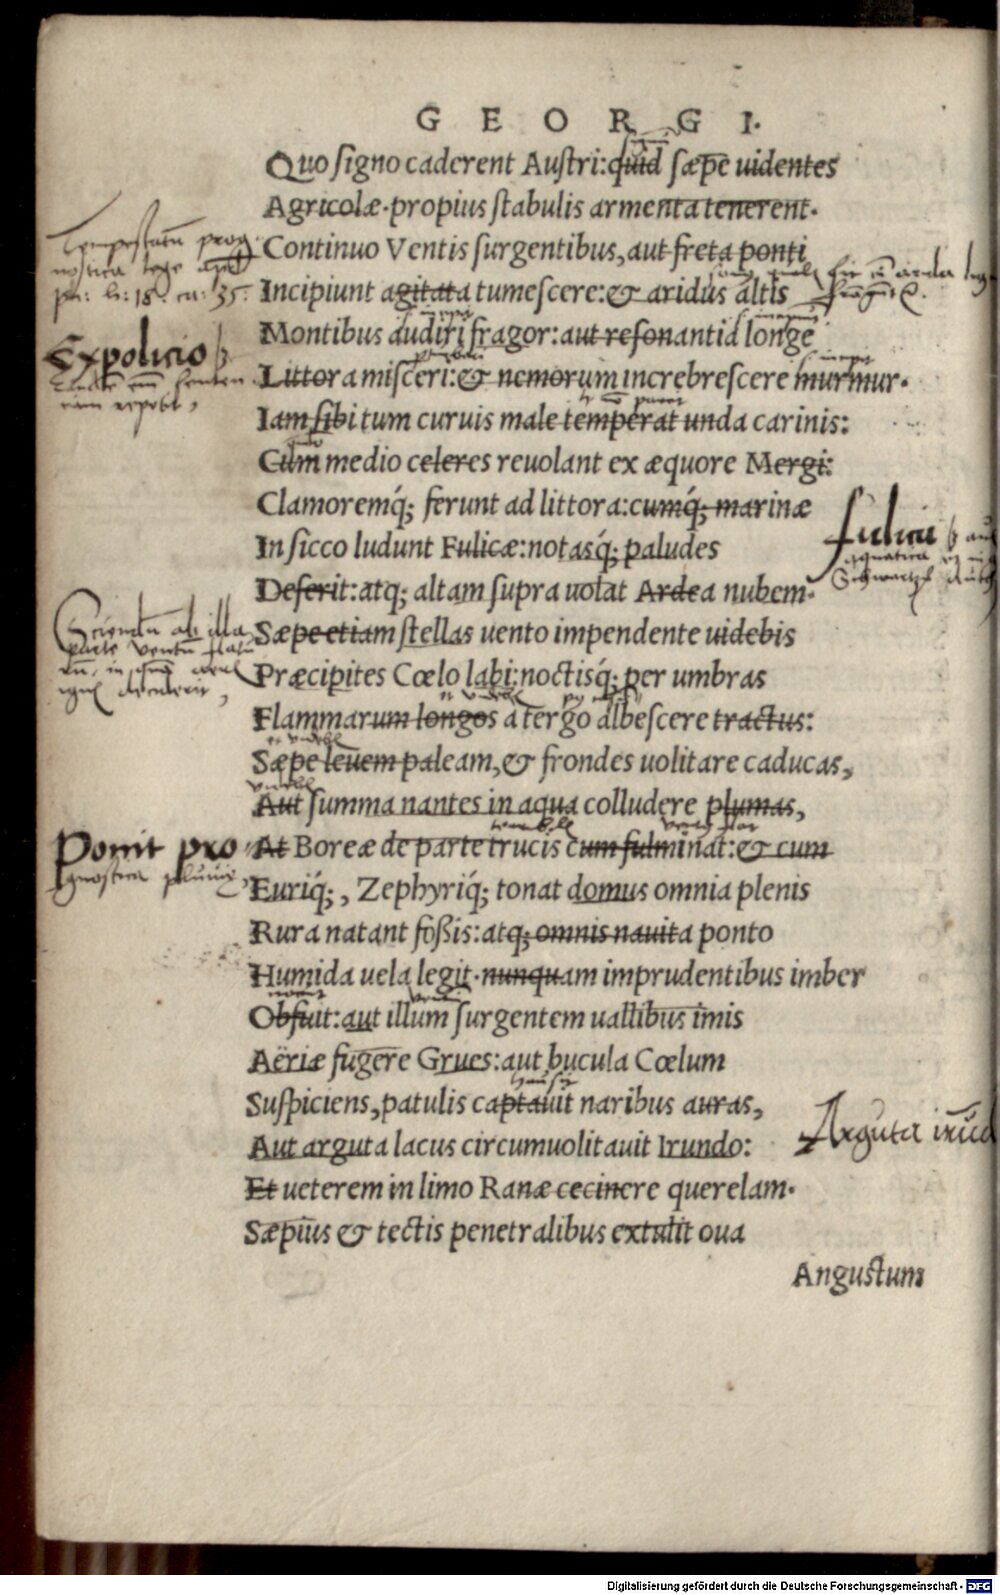 GEORGI.
Quo signo caderent Austri: quid sæpe uidentes
Agricolæ. propius stabulis armenta tenerent.
Continuo Ventis surgentibus, aut freta ponti
Incipiunt agitata tumescere: & aridus altis
Montibus audiri fragor: aut resonantia longe
Littora misceri: & nemorum increbrescere murmur.
Iam sibi tum curuis male temperat unda carinis:
Cum medio celeres reuolant ex æquore Mergi:
Clamoremq́; ferunt ad littora: cumq́; marinæ
In sicco ludunt Fulicæ: notasq́; paludes
Deserit: atq; altam supra uolat Ardea nubem.
Sæpe etiam stellas uento impendente uidebis
Præcipites Cœlo labi: noctisq́; per umbras
Flammarum longos a tergo albescere tractus:
Sæpe leuem paleam, & frondes uolitare caducas,
Aut summa nantes in aqua colludere plumas,
At Boreæ de parte trucis cum fulminat: & cum
Euriq́;, Zephyriq́; tonat domus omnia plenis
Rura natant fossis: atq; omnis nauita ponto
Humida uela legit. nunquam imprudentibus imber
Obfuit: aut illum surgentem uallibus imis
Aëriæ fugere Grues: aut bucula Cœlum
Suspiciens, patulis captauit naribus auras,
Aut arguta lacus circumuolitauit Irundo:
Et ueterem in limo Ranæ cecinere querelam.
Sæpius & tectis penetralibus extulit oua
Angustum
Expolicio
Ponit pro
gnostica pluuiæ
Arguta
Digitalisierung gefördert durch die Deutsche Forschungsgemeinschaft - DFG